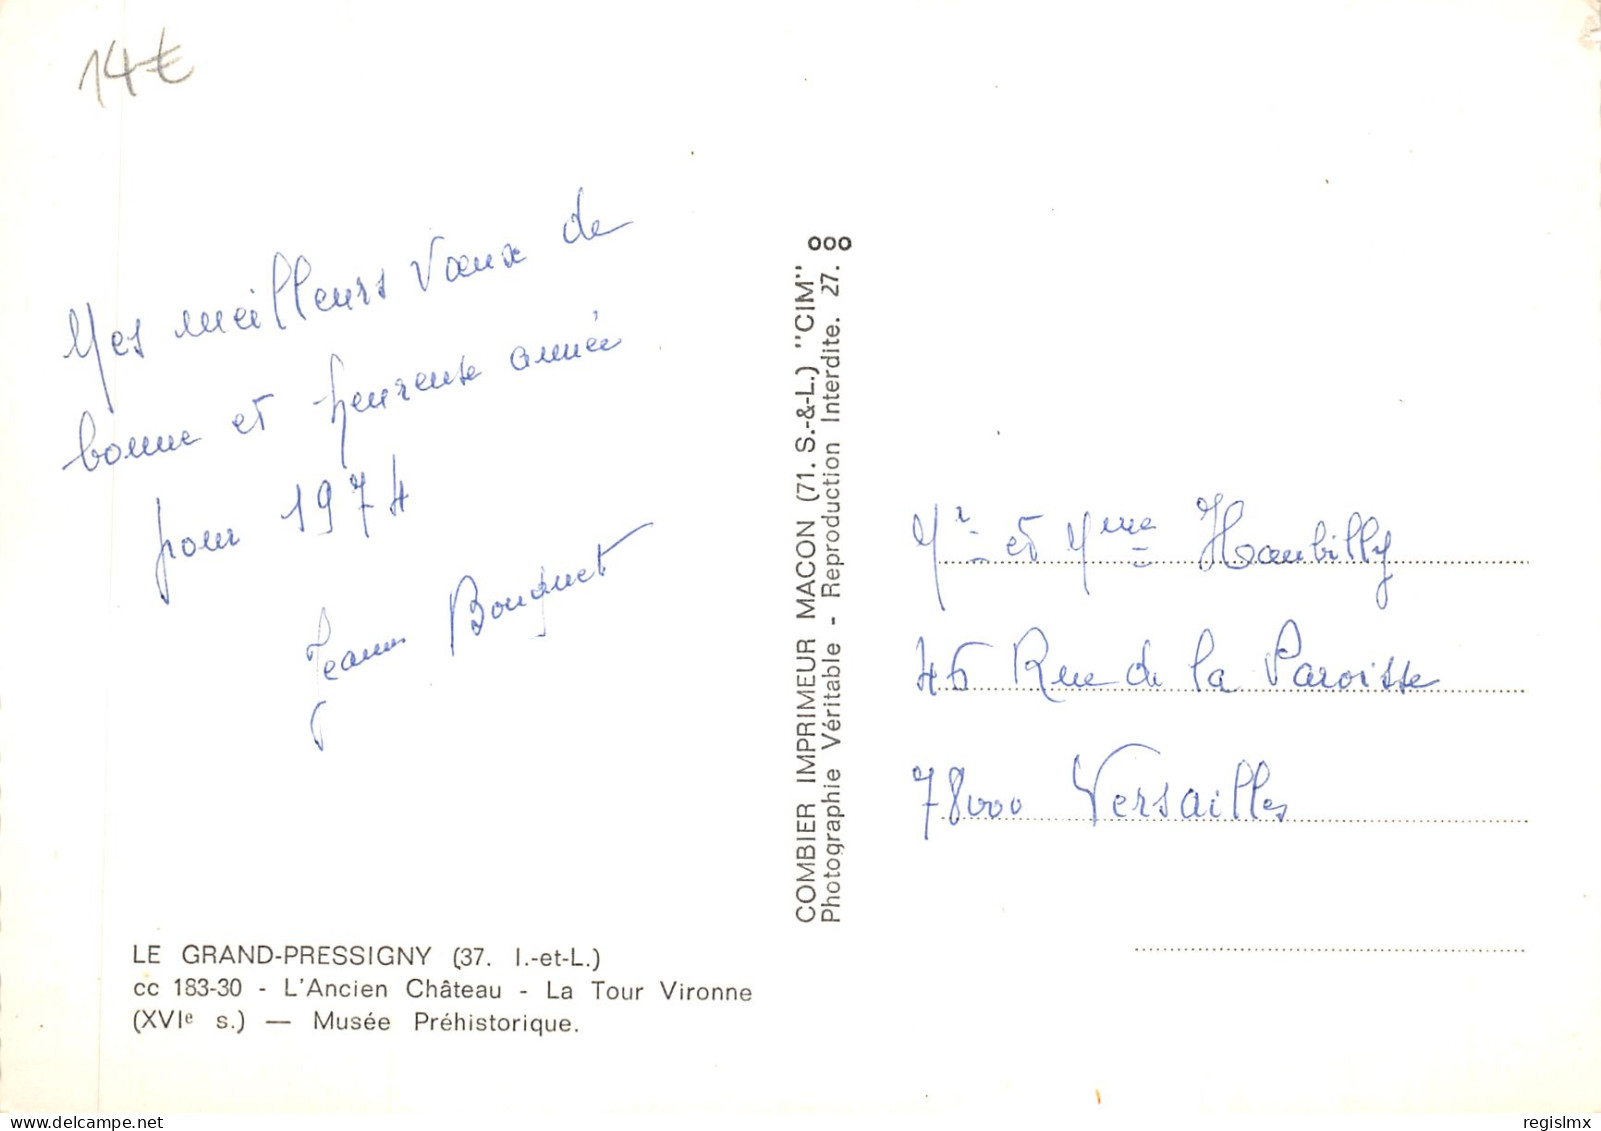 14€
Mes meilleurs vœux de
bonne et heureuse année
pour 1974
Jeanne Bouquet
LE GRAND-PRESSIGNY (37. I.-et-L.)
cc 183-30 - L'Ancien Château - La Tour Vironne
(XVIe s.) — Musée Préhistorique.
COMBIER IMPRIMEUR MACON (71. S.-&-L.) "CIM"
Photographie Véritable - Reproduction Interdite. 27. ooo
Mr et Mme
46 Rue de la Paroisse
78000 Versailles
regislmx